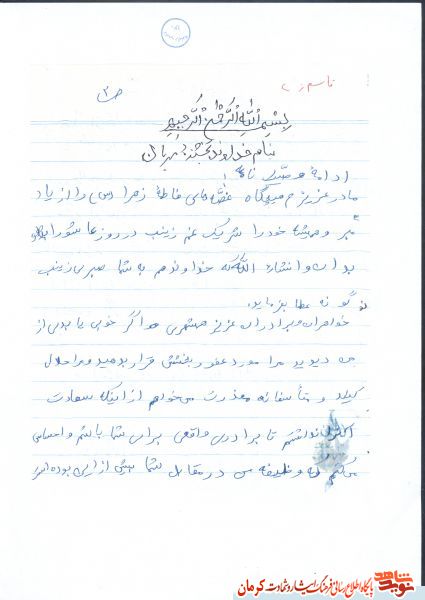 ص ۳
بسم الله الرحمن الرحیم
بنام خداوند بخشنده مهربان
ادامه وصیت نامه:
مادر عزیزم هیچگاه غصه‌های فاطمه زهرا (س) را از یاد
مبر و همیشه خود را شریک غم زینب در روز عاشورا
بدان وانشاء الله که خداوند هم به شما صبری زینب
گونه عطا بفرماید.
خواهران و برادران عزیز همشهری هم اگر خوبی یا بدی از
من دیدید مرا مورد عفو و بخشش قرار بدهید و مرا حلال
کنید و متأسفانه معذرت می‌خواهم از اینکه سعادت
نداشتم تا برادری واقعی برای شما باشم و احساس
میکنم که وظیفه من در مقابل شما بیش از این بوده است
نوید شاهد
پایگاه اطلاع رسانی فرهنگ ایثار و شهادت کرمان